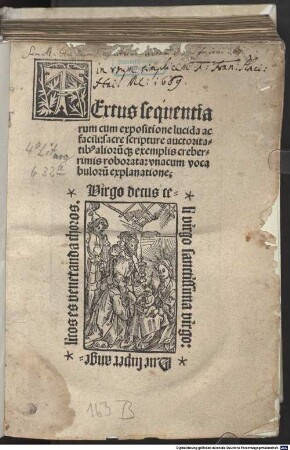 in usum simplicem
1689
Textus sequentia
rum cum expositione lucida ac
facili: sacre scripture auctorita-
tibꝰ aliorūqꝫ exemplis creber-
rimis roborata: vnacum voca
bulorū explanatione;
4° Lit
urg
632a
Virgo decus ce-
li virgo sanctissima virgo:
Que super ange-
licos es veneranda choros.
163 B